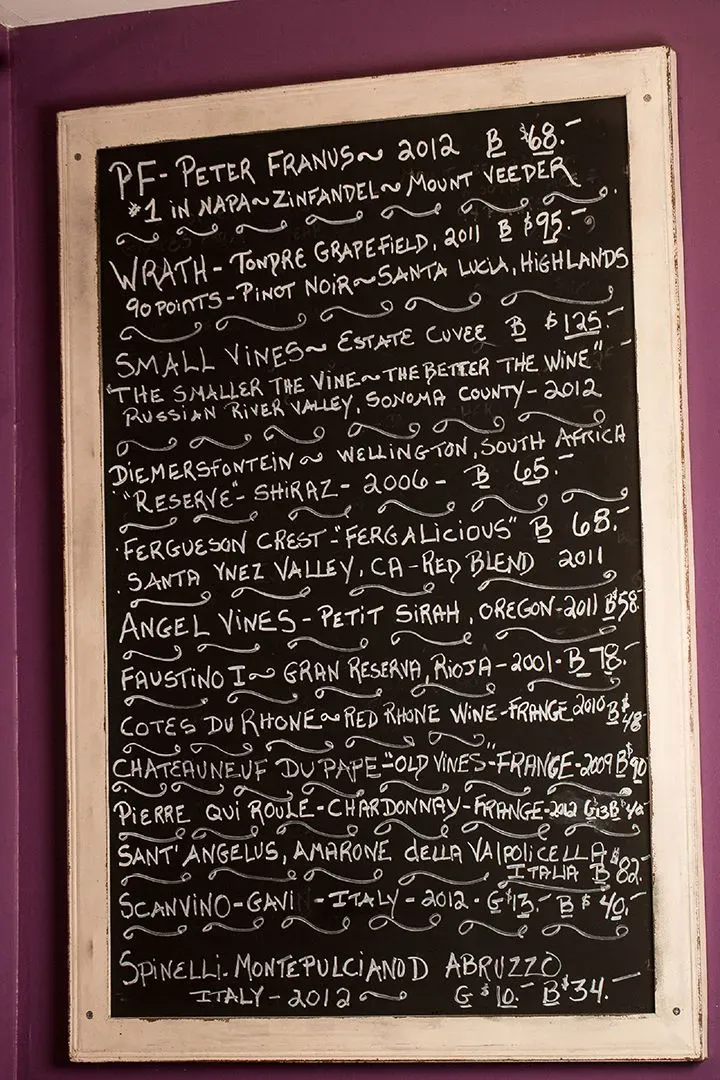 PF- PETER FRANUS~ 2012 B $68.-
#1 IN NAPA~ZINFANDEL~MOUNT VEEDER
WRATH- TONDRE GRAPEFIELD, 2011 B $95.-
90 POINTS-PINOT NOIR~SANTA LUCIA, HIGHLANDS
SMALL VINES~ ESTATE CUVEE B $125.-
"THE SMALLER THE VINE~THE BETTER THE WINE"
RUSSIAN RIVER VALLEY, SONOMA COUNTY-2012
DIEMERSFONTEIN~ WELLINGTON, SOUTH AFRICA
"RESERVE"- SHIRAZ- 2006- B 65.-
FERGUESON CREST-"FERGALICIOUS" B 68.-
SANTA YNEZ VALLEY, CA-RED BLEND 2011
ANGEL VINES- PETIT SIRAH, OREGON-2011 B$58.-
FAUSTINO I~ GRAN RESERVA, RIOJA-2001- B 78.-
COTES DU RHONE~RED RHONE WINE-FRANGE 2010 B$48-
CHATEAUNEUF DU PAPE-"OLD VINES"-FRANGE-2009 B$90
PIERRE QUI ROULE-CHARDONNAY-FRANGE-2012 G13 B$40-
SANT'ANGELUS, AMARONE della VAlpOLICELLA
ITALIA B $82.-
SCANVINO-GAVI -ITALY-2012- G$13.- B $40.-
SPINELLI- MONTEPULCIANO D ABRUZZO
ITALY-2012~ G $10.- B $34.-